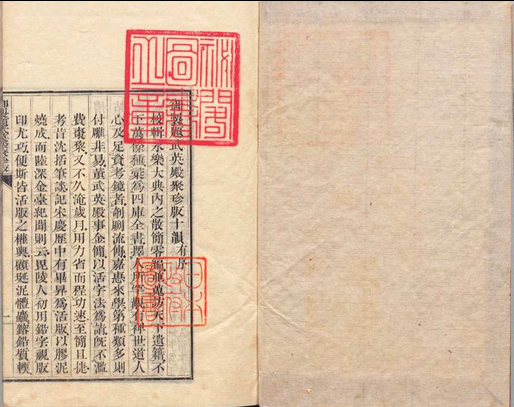 御製題武英殿聚珍版十韻有序
校輯永樂大典內之散簡零編並蒐訪天下遺籍不
下萬餘種彙爲四庫全書擇人所罕覯有裨世道人
心及足資考鏡者剞劂流傳嘉惠來學第種類多則
付雕非易董武英殿事金簡以活字法爲請既不濫
費棗棃又不久淹歲月用力省而程功速至簡且捷
考昔沈括筆談記宋慶歷中有畢昇爲活版以膠泥
燒成而陸深金臺紀聞則云毘陵人初用鉛字視版
印尤巧便斯皆活版之權輿顧埏泥體麤鎔鉛質輭
一
祕閣圖書之章
日本政府圖書